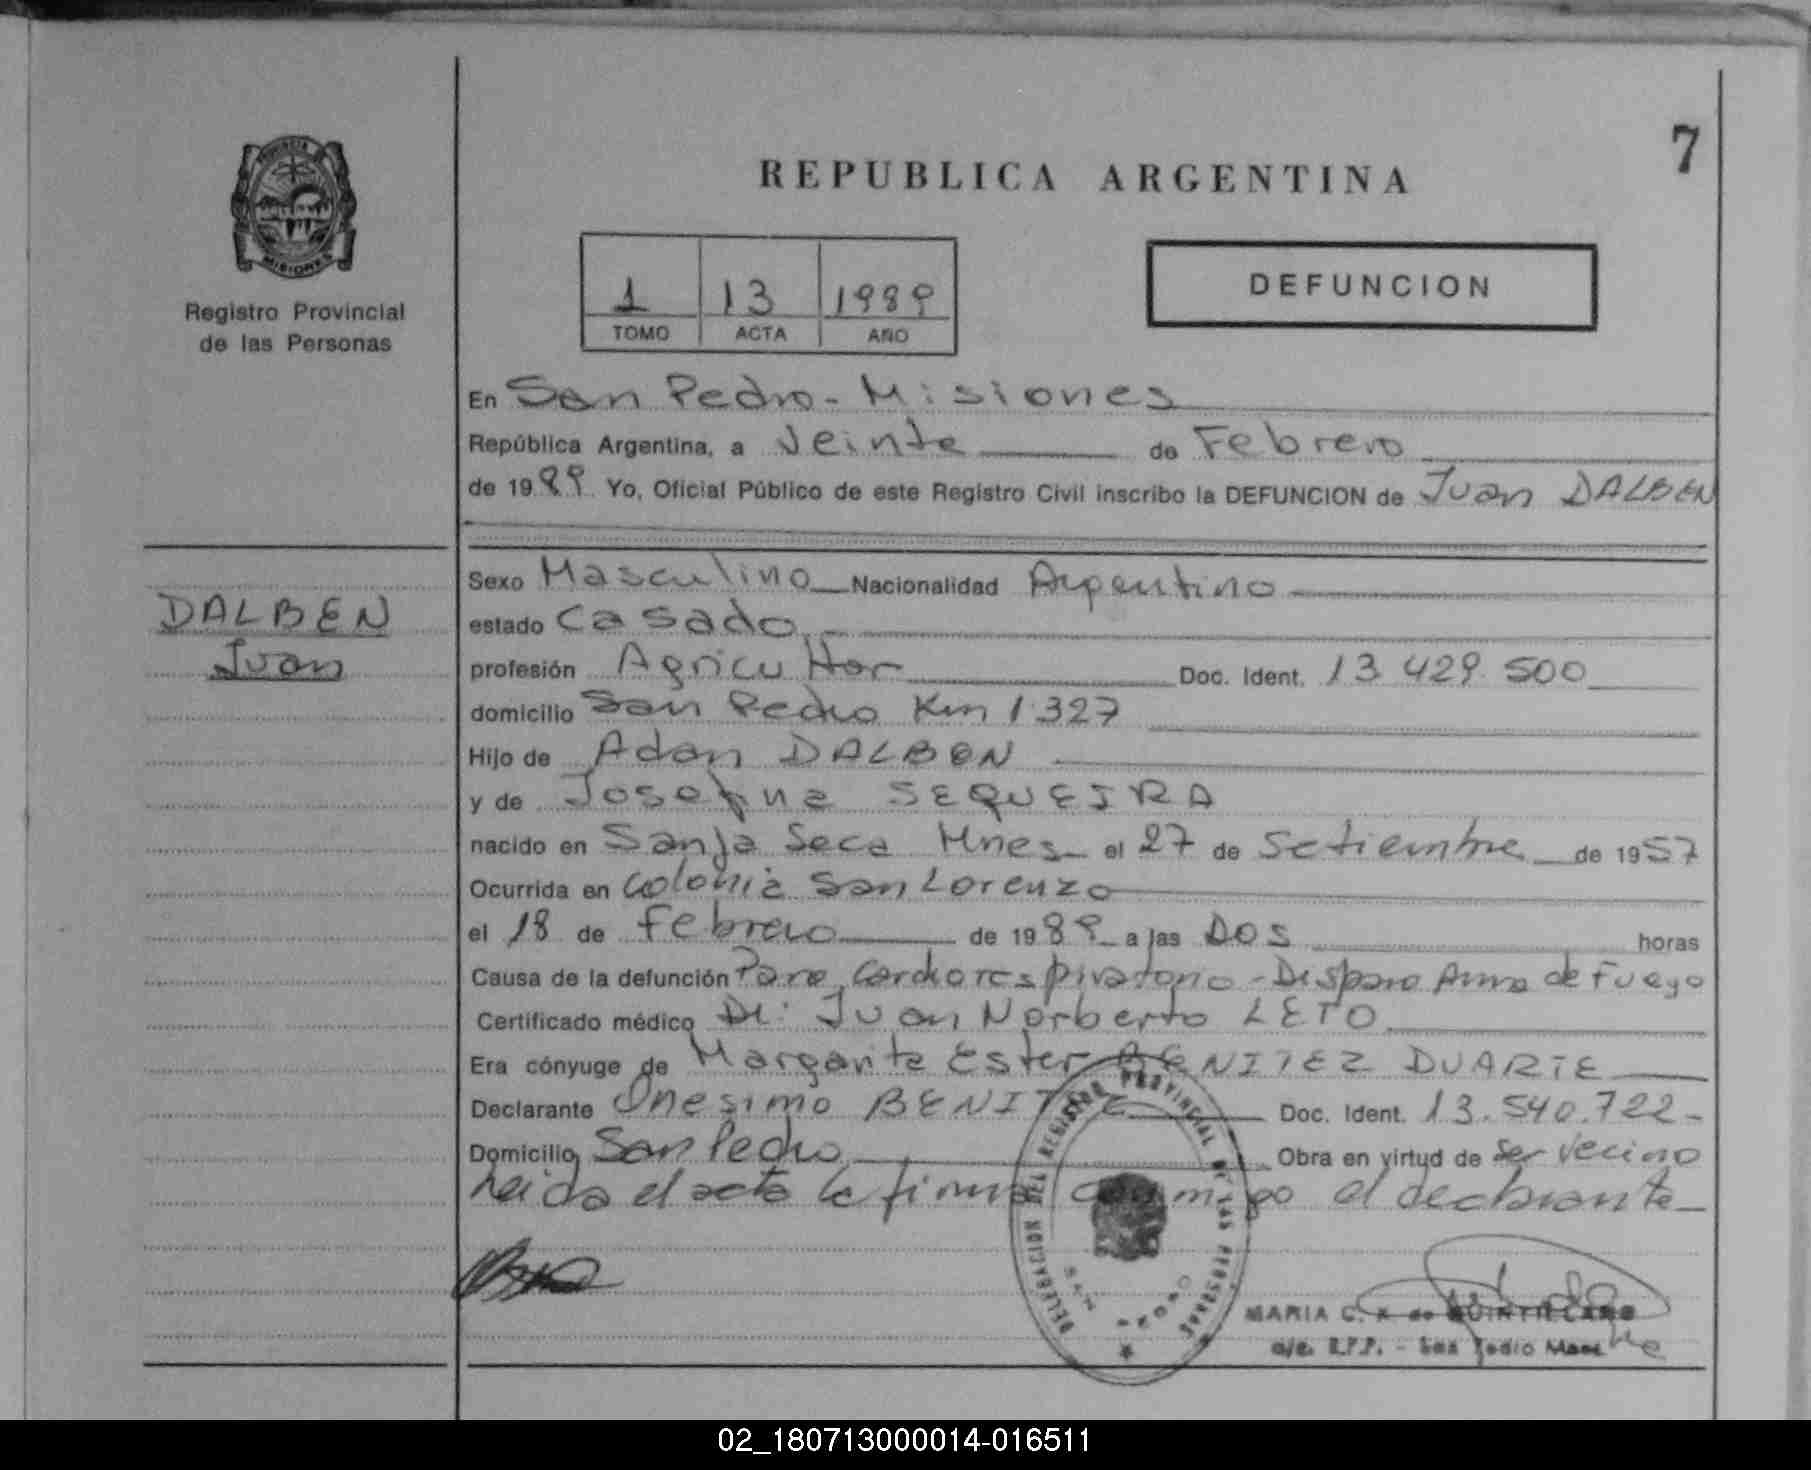 7
REPUBLICA ARGENTINA
PROVINCIA DE
MISIONES
Registro Provincial
de las Personas
1 13 1989
TOMO ACTA AÑO
DEFUNCION
En San Pedro - Misiones
República Argentina, a Veinte de Febrero
de 1989 Yo, Oficial Público de este Registro Civil inscribo la DEFUNCION de Juan DALBEN
DALBEN
Juan
Sexo Masculino Nacionalidad Argentino
estado Casado
profesión Agricultor Doc. Ident. 13.429.500
domicilio San Pedro Km 1327
Hijo de Adan DALBEN
y de Josefina SEQUEIRA
nacido en Sanja Seca Mnes el 27 de Setiembre de 1957
Ocurrida en Colonia San Lorenzo
el 18 de Febrero de 1989 a las Dos horas
Causa de la defunción Paro Cardiorespiratorio - Disparo Arma de Fuego
Certificado médico Dr. Juan Norberto LETO
Era cónyuge de Margarita Ester BENITEZ DUARTE
Declarante Onesimo BENITEZ Doc. Ident. 13.540.722-
Domicilio San Pedro Obra en virtud de ser vecino
Leida el acta la firma conmigo el declarante
DELEGACION DEL REGISTRO PROVINCIAL DE LAS PERSONAS
SAN PEDRO
MARIA C. K. de QUINTILLANO
a/c. R.P.P. - San Pedro Mnes
02_180713000014-016511